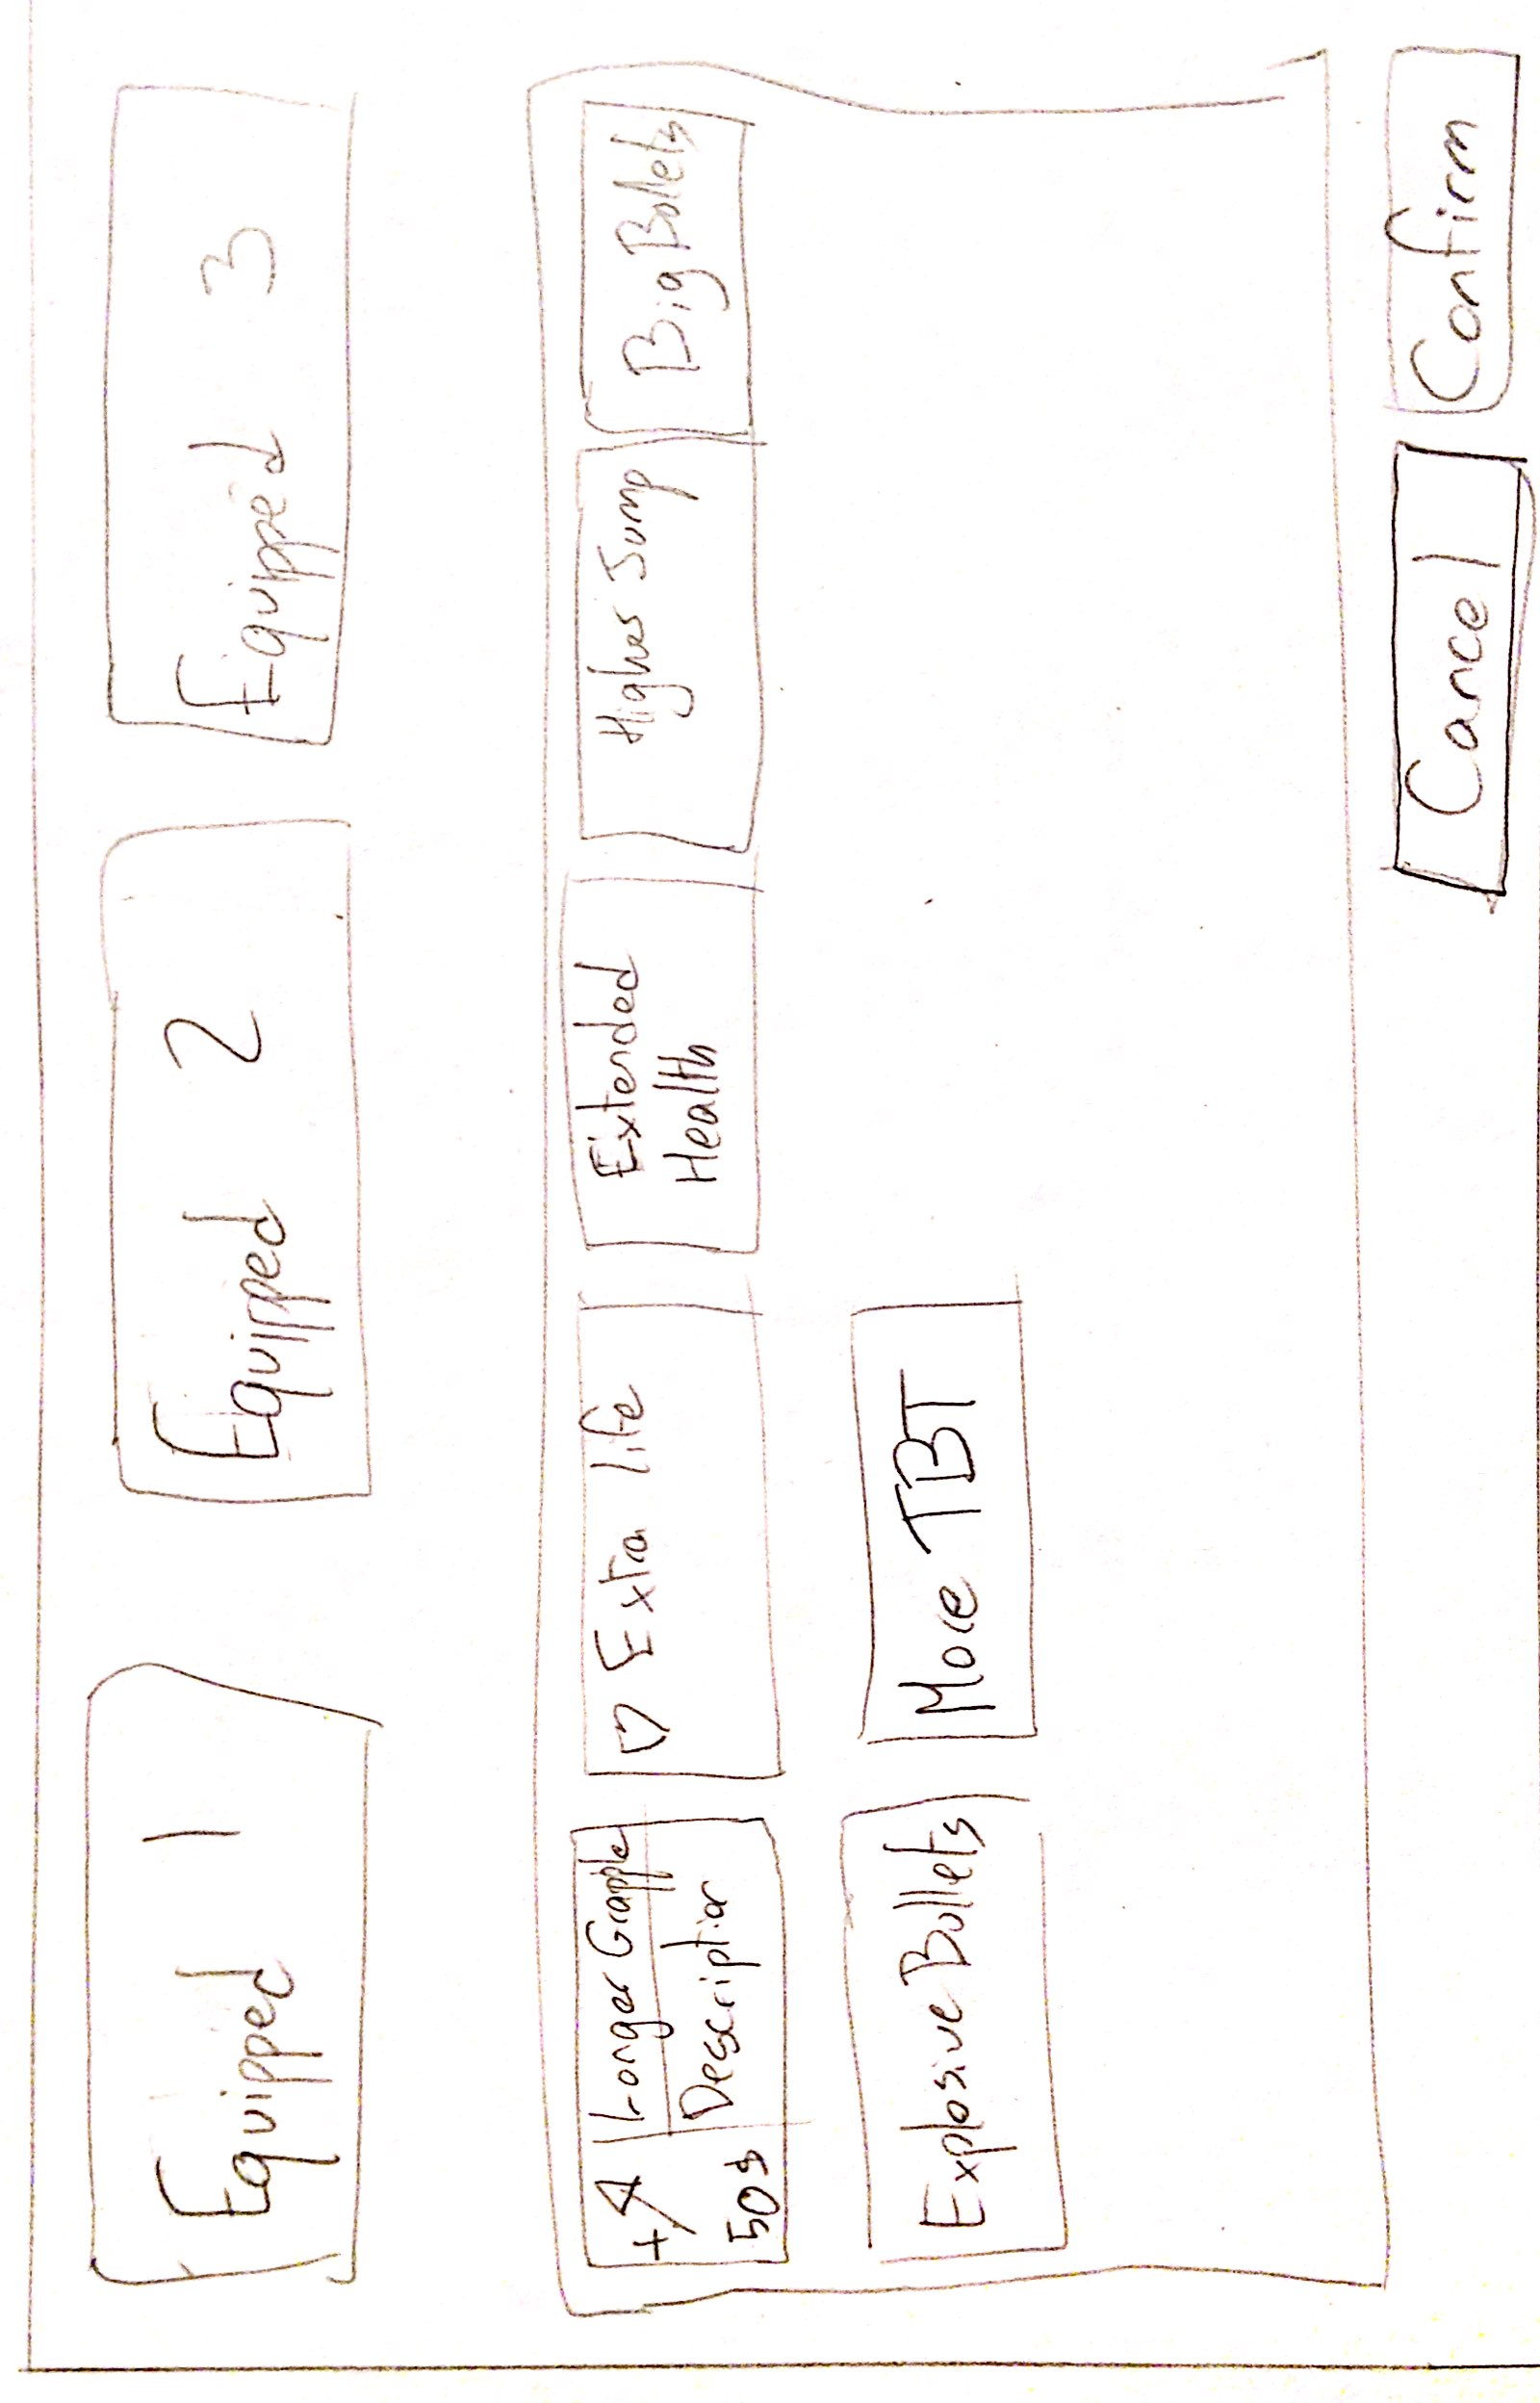 Equipped 1
Equipped 2
Equipped 3
Longer Grapple
Description
50$
Extra life
Extended
Health
Higher Jump
Big Bullets
Explosive Bullets
More TBT
Cancel
Confirm